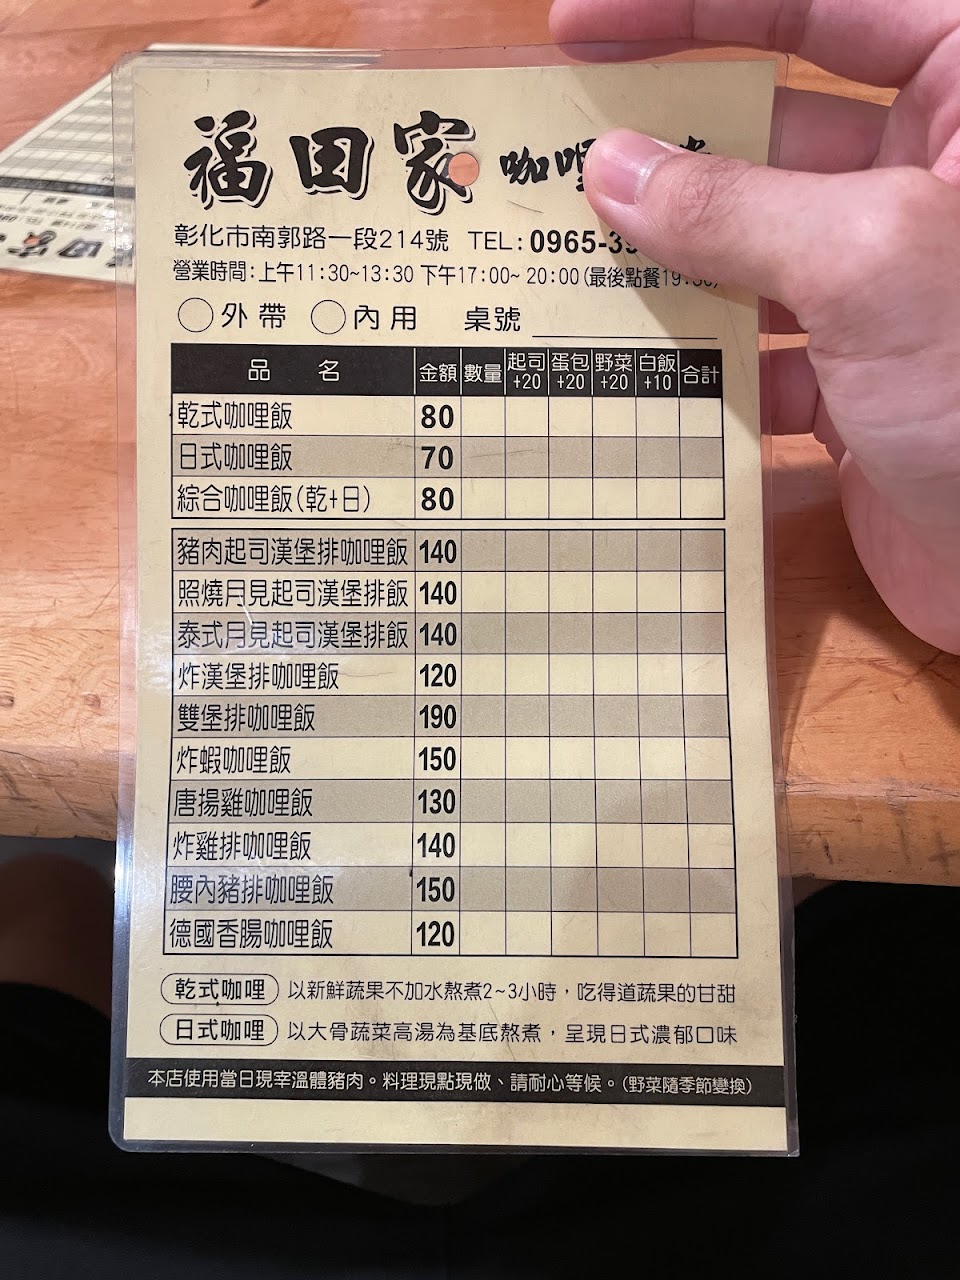 福田家 咖哩
彰化市南郭路一段214號 TEL:0965-39
營業時間:上午11:30~13:30 下午17:00~20:00(最後點餐19:30)
外帶 內用 桌號
品名 金額 數量 起司+20 蛋包+20 野菜+20 白飯+10 合計
乾式咖哩飯 80
日式咖哩飯 70
綜合咖哩飯(乾+日) 80
豬肉起司漢堡排咖哩飯 140
照燒月見起司漢堡排飯 140
泰式月見起司漢堡排飯 140
炸漢堡排咖哩飯 120
雙堡排咖哩飯 190
炸蝦咖哩飯 150
唐揚雞咖哩飯 130
炸雞排咖哩飯 140
腰內豬排咖哩飯 150
德國香腸咖哩飯 120
乾式咖哩 以新鮮蔬果不加水熬煮2~3小時，吃得道蔬果的甘甜
日式咖哩 以大骨蔬菜高湯為基底熬煮，呈現日式濃郁口味
本店使用當日現宰溫體豬肉。料理現點現做、請耐心等候。(野菜隨季節變換)